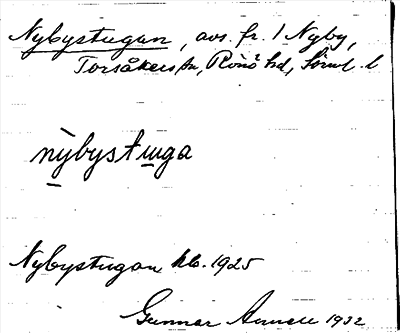 Nybystugan, avs. fr. 1 Nyby,
Torsåkers sn, Rönö hd, Söml. l.
nybystuga
Nybystugan kb. 1925
Gunnar 1932